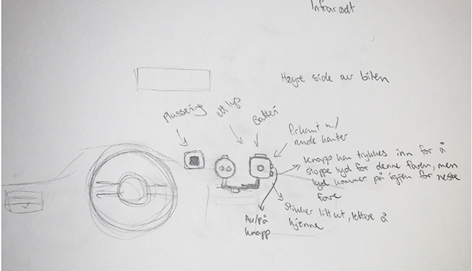 Infrarødt
Høyre side av bilen
Plassering
Batteri
Firkant m/
runde kanter
Knapp kan trykkes inn for å
stoppe lyd for denne faren, men
lyd kommer på igjen for neste
fare
Stikker litt ut, lettere å
kjenne
Av/På
knapp